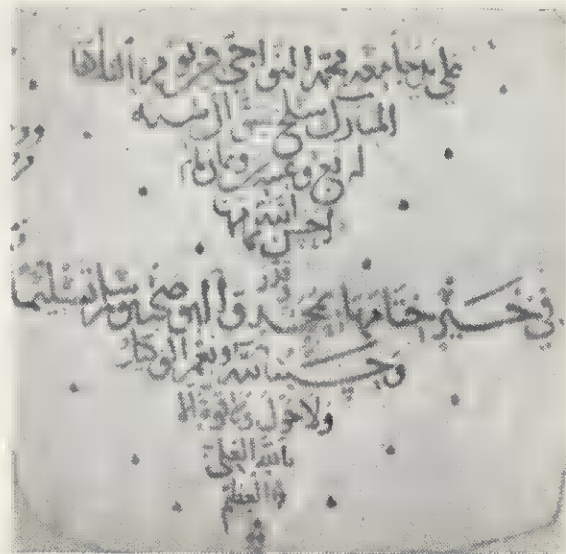 على يد جامعه محمد النواجي في يوم
المبارك سلخ سنه
اربع وعشرين وثمان
احسن الله
في خير ختامها بمحمد وآله وصحبه وسلم تسليما
وحسبنا الله ونعم الوكيل
ولا حول ولا قوة الا
بالله العلي
العظيم